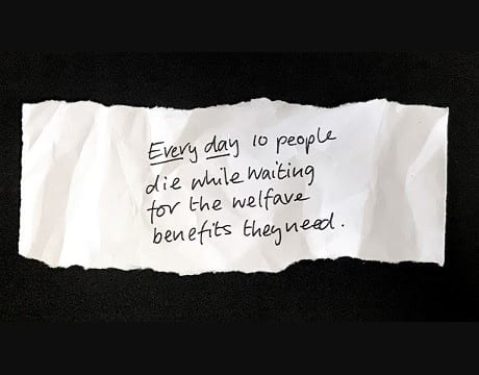 Every day 10 people
die while waiting
for the welfare
benefits they need.